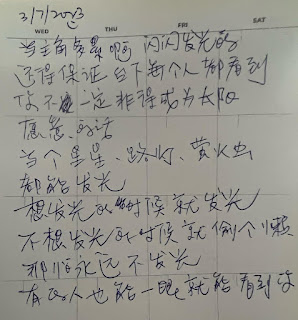 3/7/2023
WED THU FRI SAT
当主角多累啊 闪闪发光的
还得保证台下每个人都看到
你不一定非得成为太阳
愿意的话
当个星星、路灯、萤火虫
都能发光
想发光的时候就发光
不想发光的时候就偷个懒
那怕永远不发光
有的人也能一眼就能看到你